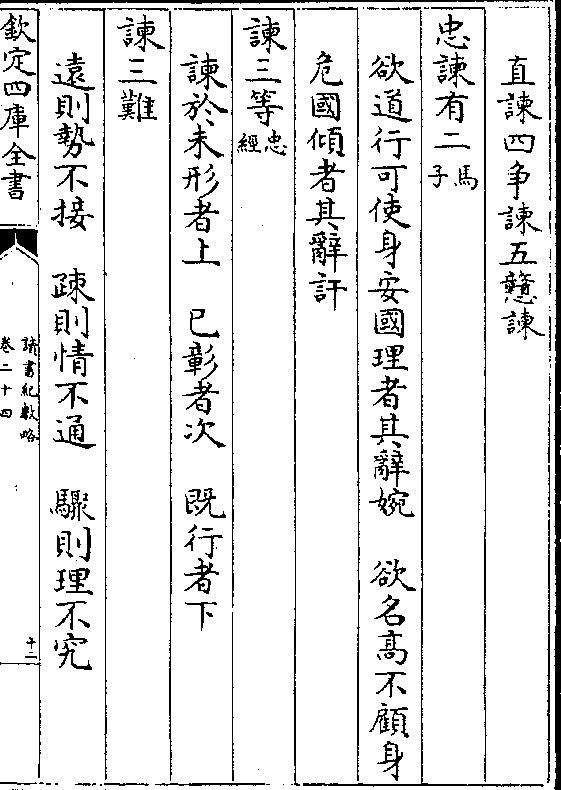 直諫四爭諫五戇諫
忠諫有二馬子
欲道行可使身安國理者其辭婉　欲名高不顧身
危國傾者其辭訐
諫三等忠經
諫於未形者上　已彰者次　既行者下
諫三難
遠則勢不接　疎則情不通　驟則理不究
欽定四庫全書
讀書紀數略
卷二十四
十二